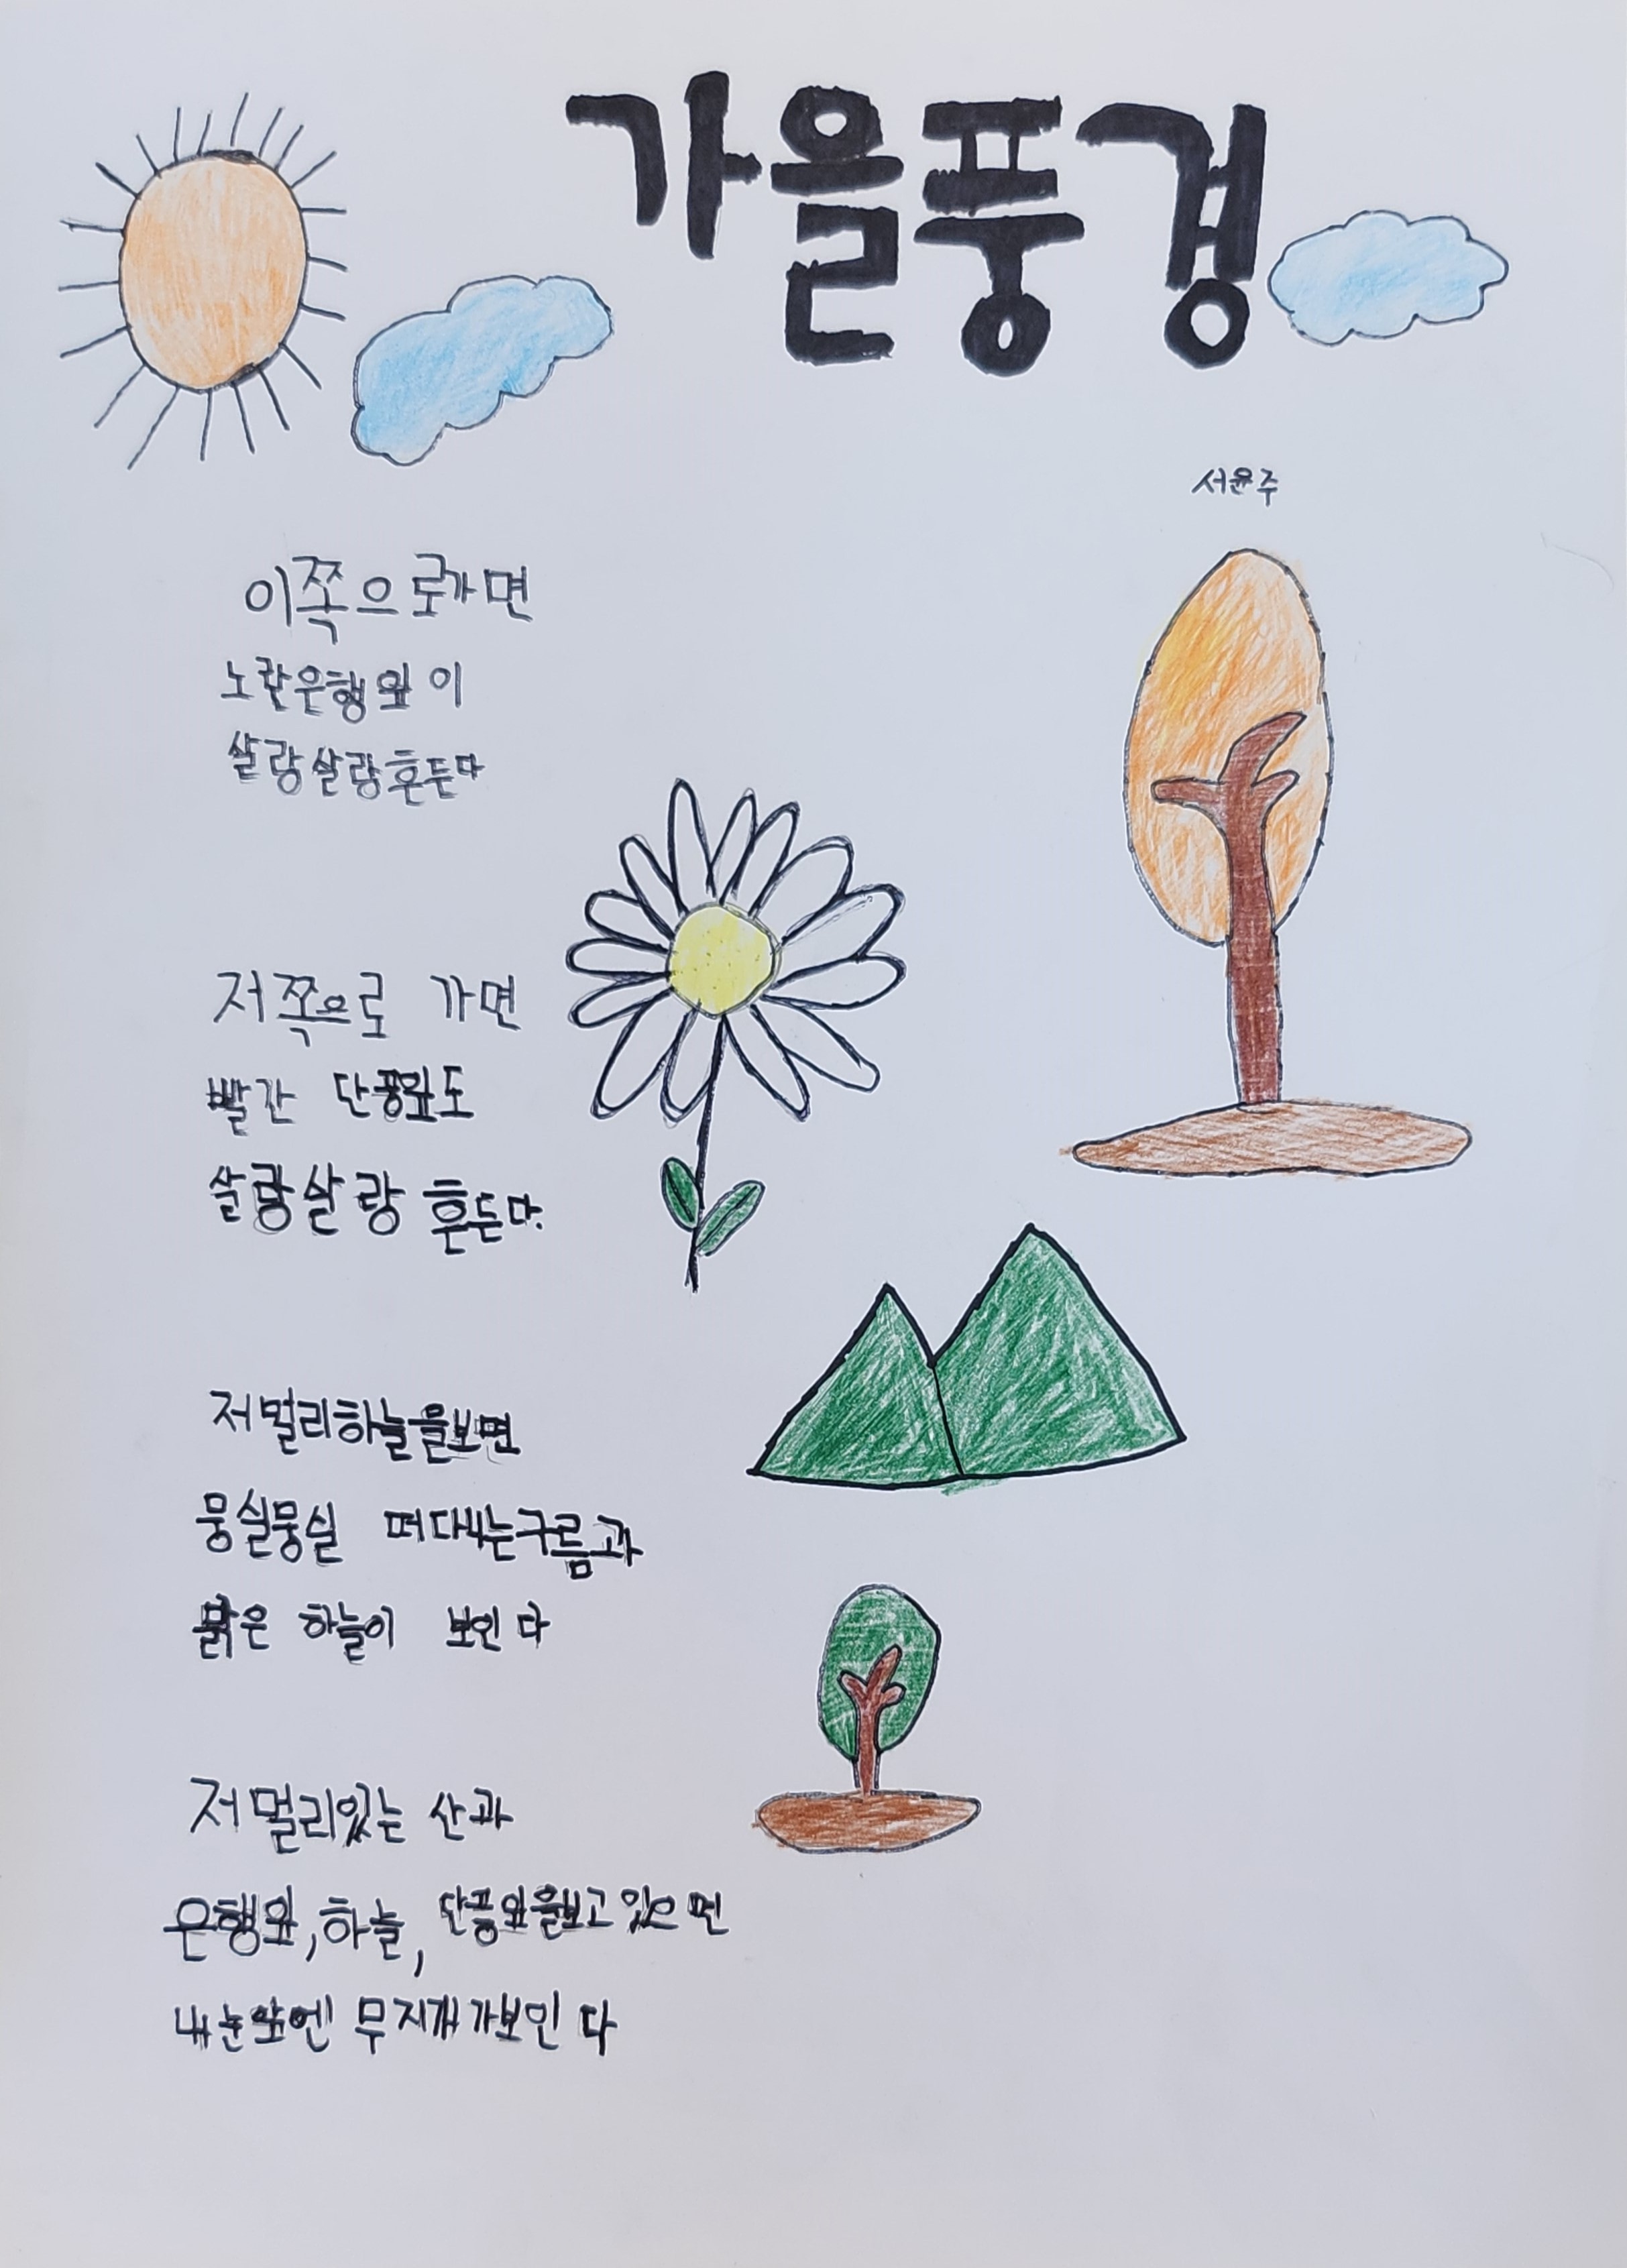 가을풍경
서윤주
이쪽으로가면
노란은행잎이
살랑살랑흔든다
저쪽으로 가면
빨간 단풍잎도
살랑살랑 흔든다.
저멀리하늘을보면
뭉실뭉실 떠다니는구름과
붉은 하늘이 보인다
저멀리있는 산과
은행잎,하늘, 단풍잎을보고있으면
내눈앞엔 무지개가보인다